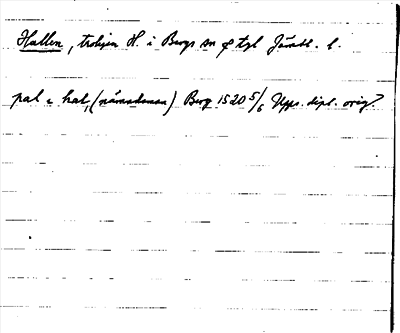 Hallen, troligen H. i Bergs sn o tgl Jämtl. l.
pal i hal, (nämndeman) Berg 1520 5/6 Upps. dipl. orig?